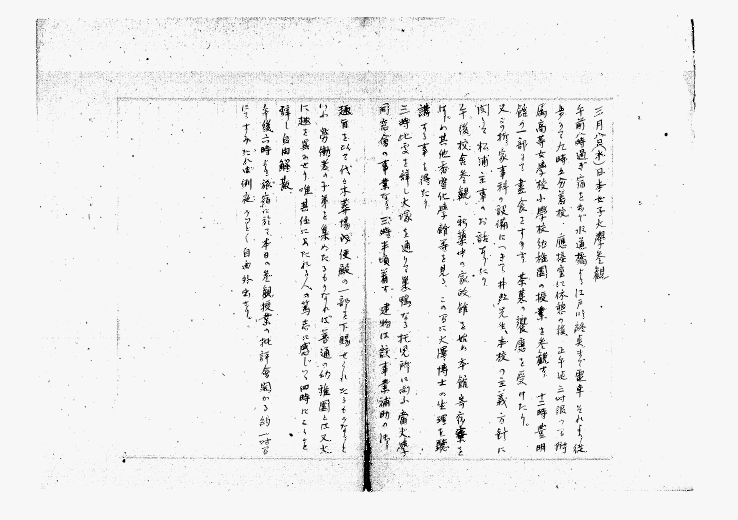 三月八日(水)日本女子大學参観
午前八時過ぎ宿を出で水道橋より江戸川終点まで電車 それより徒
歩にて九時五分着校 應接室に休憩の後 正午迄三時限つゝ附
属高等女學校小學校幼稚園の授業を参観す 十二時豊明
館の一部にて晝食をなす 茶菓の饗應を受けたり
又この折家事科の設備につきて井上先生本校の主義方針に
関して松浦主事のお話ありたり
午後校舎参観 新築中の家政館を始め本館寄宿寮を
はじめ其他香雪化學館等を見る この方に大澤博士の生理を聴
講する事を得たり
三時此處を辞し大塚を通りて巣鴨なる托児所に向ふ 當大學
同窓會の事業なり 三時半頃着す 建物は該事業補助の為
趣旨を以て代々木葬場殿便殿の一部を下賜せられたるものなりと
いふ 労働者の子弟を集めたるものなれば普通の幼稚園とは又大
に趣を異にせり 唯其任にあたれる人の篤志に感じて四時にこゝを
辞し自由解散
午後六時より旅宿に於て本日の参観授業の批評會開かる 約一時間
にてすみたれば例夜の如く自由外出なり